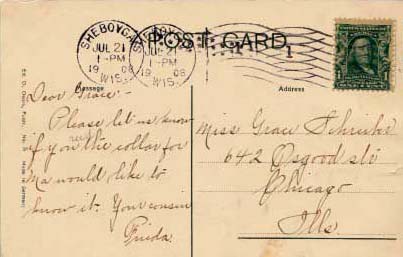 SHEBOYGAN
JUL 21
1-PM
1908
WIS.
SHEBOY
JUL 21
1-PM
1908
WIS.
POST CARD
1
1
Message
Address
Dear Grace:-
Please let us know
if you rec the collar for
Ma would like to
know it. Your cousin
Frieda.
Miss Grace
642 Osgood str
Chicago
Ills.
Made in Germany